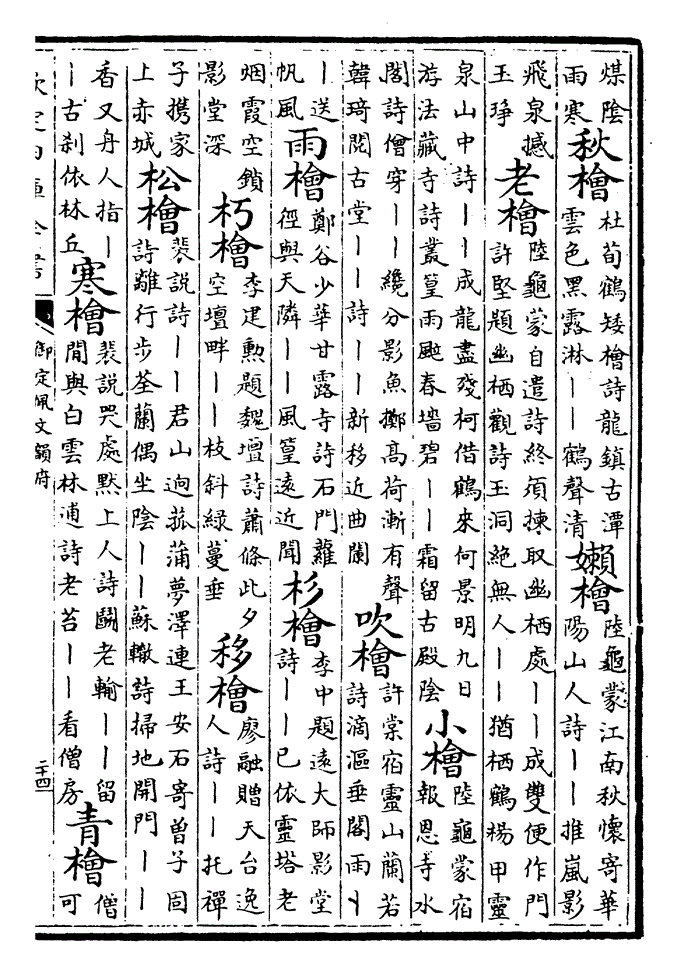 煤陰雨寒秋檜杜荀鶴矮檜詩龍鎮古潭雲色黑露淋丨丨鶴聲清嬾檜陸龜蒙江南秋懷寄華陽山人詩丨丨推嵐影
飛泉撼玉琤老檜陸龜蒙自遣詩終須揀取幽栖處丨丨成雙便作門許堅題幽栖觀詩玉洞絕無人丨丨猶栖鶴楊甲靈
泉山中詩丨丨成龍盡殘柯借鶴來何景明九日游法藏寺詩叢篁雨颭春墻碧丨丨霜留古殿陰小檜陸龜蒙宿報恩寺水
閣詩僧穿丨丨纔分影魚擲高荷漸有聲韓琦閱古堂丨丨詩丨丨新移近曲闌吹檜許棠宿靈山蘭若詩滴漚垂閣雨丨
丨送帆風雨檜鄭谷少華甘露寺詩石門蘿徑與天隣丨丨風篁遠近聞杉檜李中題遠大師影堂詩丨丨已依靈塔老
烟霞空鎖影堂深朽檜李建勲題魏壇詩蕭條此夕空壇畔丨丨枝斜綠蔓垂移檜廖融贈天台逸人詩丨丨托禪
子携家上赤城松檜裴説詩丨丨君山逈菰蒲夢澤連王安石寄曾子固詩離行步荃蘭偶坐陰丨丨蘇轍詩掃地開門丨丨
香又舟人指丨丨古刹依林丘寒檜裴説哭處黙上人詩鬭老輸丨丨留閒與白雲林逋詩老苔丨丨看僧房青檜僧可
欽定四庫全書
御定佩文韻府
二十四